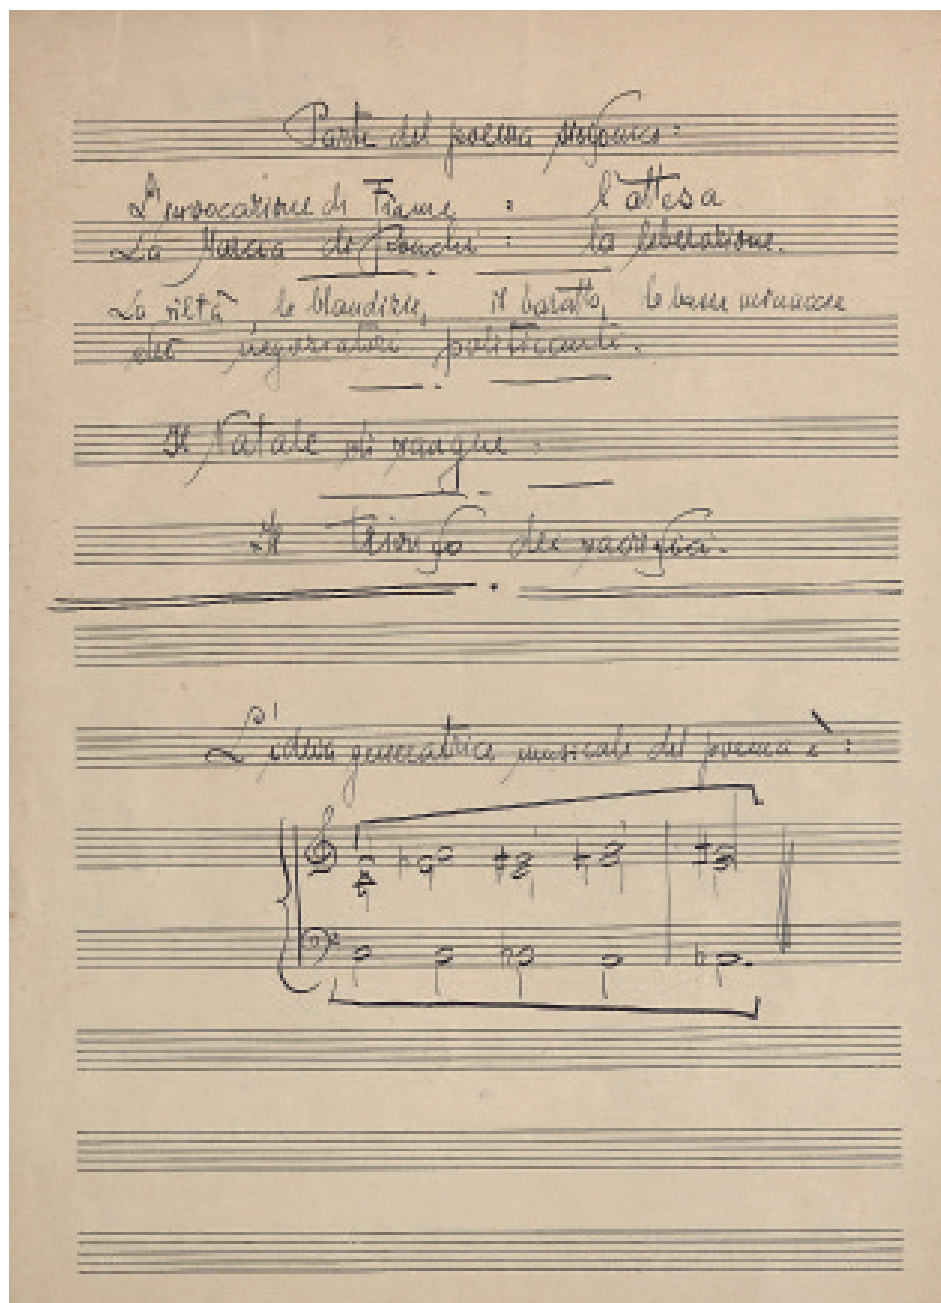 Parti del poema sinfonico:
L'invocazione di Fiume : l'attesa
La Marcia di Ronchi : la liberazione.
La viltà le blandizie, il baratto, le basse minaccie
dei negoziatori politicanti.
Il Natale di sangue.
Il trionfo dei sacrifici.
L'idea generatrice musicale del poema è :